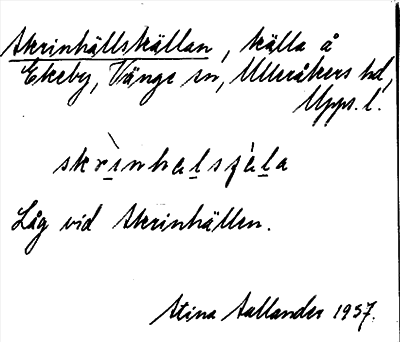 Skrinhällskällan, källa å
Ekeby, Vänge sn, Ulleråkers hd,
Upps. l.
skrìnhalsʃàla
Låg vid Skrinhällen.
Stina Sallander 1937.